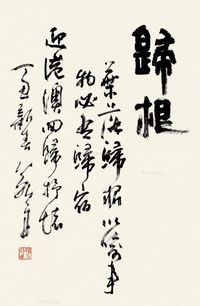 歸根
葉落歸根以喻事
物必有歸宿
迎港澳回歸抒懷
丁丑新春